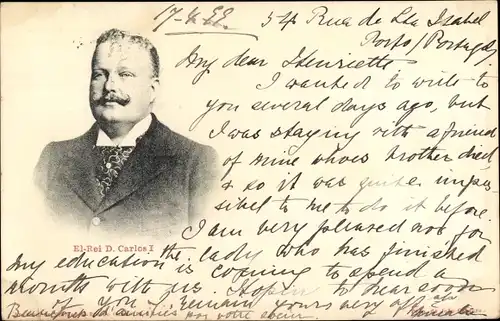 54 Rua de Sta Isabel
Porto/Portugal
My dear Henriette
I wanted to write to
you several days ago, but
I was staying with a friend
of mine whoes brother died
& so it was quite impos
sibel to me to do it before.
I am very pleased now for
El-Rei D. Carlos I
the lady who has finished
my education is coming to spend a
month with us. to hear soon
of you I remain yours very aff